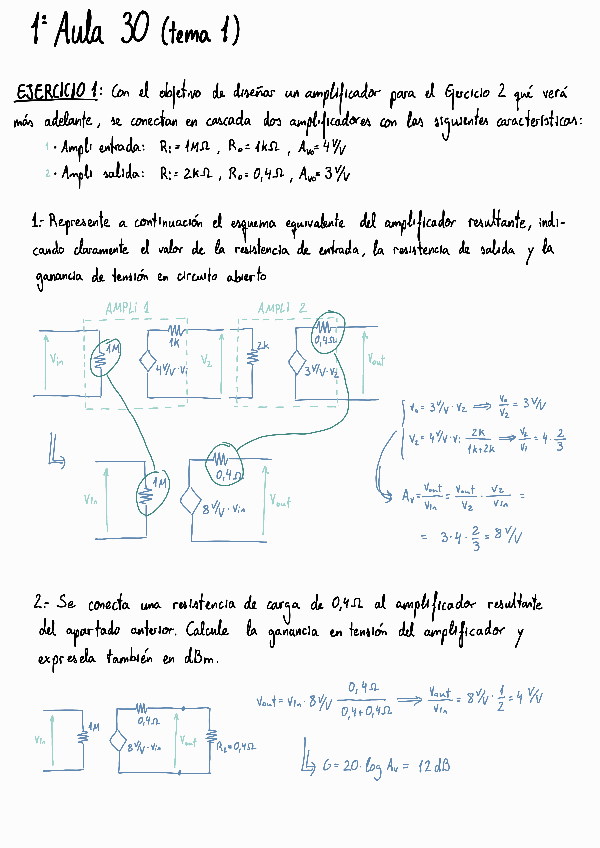 1ª Aula 30 (tema 1)
EJERCICIO 1: Con el objetivo de diseñar un amplificador para el Ejercicio 2 que verá
más adelante, se conectan en cascada dos amplificadores con las siguientes características:
1 · Ampli entrada: Ri = 1MΩ, Ro = 1kΩ, Avo = 4 V/V
2 · Ampli salida: Ri = 2kΩ, Ro = 0,4Ω, Avo = 3 V/V
1.- Represente a continuación el esquema equivalente del amplificador resultante, indi-
cando claramente el valor de la resistencia de entrada, la resistencia de salida y la
ganancia de tensión en circuito abierto
AMPLI 1
AMPLI 2
Vin
1M
1k
4 V/V · Vi
V2
2k
0,4Ω
3 V/V · V2
Vout
Vo = 3 V/V · V2 ⟹ Vo/V2 = 3 V/V
V2 = 4 V/V · Vi 2k/1k+2k ⟹ V2/Vi = 4 · 2/3
Av = Vout/Vin = Vout/V2 · V2/Vin =
= 3·4·2/3 = 8 V/V
Vin
1M
0,4Ω
8 V/V · Vin
Vout
2.- Se conecta una resistencia de carga de 0,4Ω al amplificador resultante
del apartado anterior. Calcule la ganancia en tensión del amplificador y
expresela también en dBm.
Vin
1M
0,4Ω
8 V/V · Vin
Vout
RL=0,4Ω
Vout = Vin · 8 V/V 0,4Ω/0,4+0,4Ω ⟹ Vout/Vin = 8 V/V · 1/2 = 4 V/V
G = 20 · log Av = 12 dB